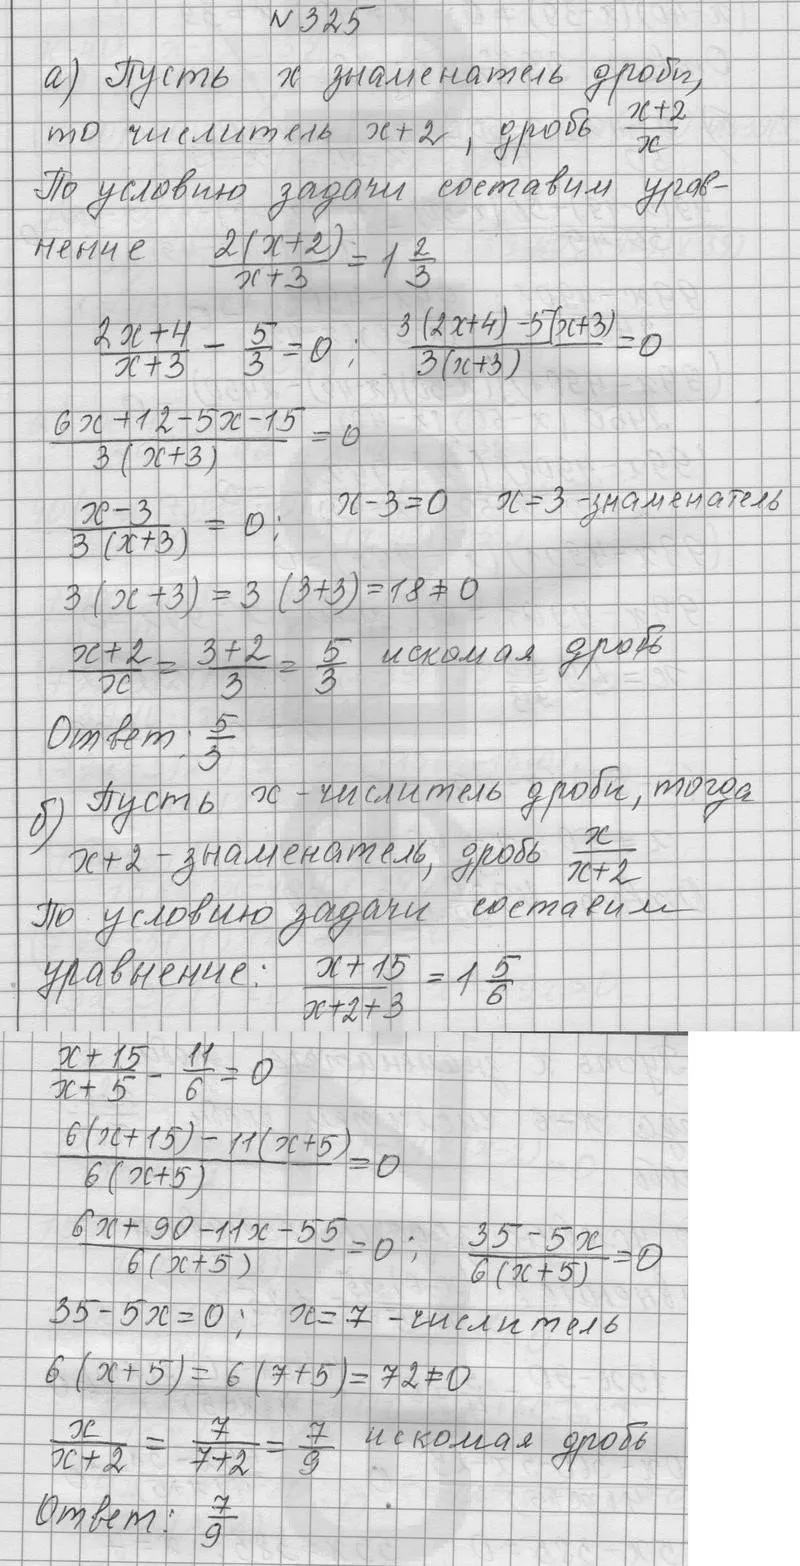 №325
а) Пусть x знаменатель дроби,
то числитель x+2, дробь (x+2)/x
По условию задачи составим урав-
нение 2(x+2)/(x+3) = 1 2/3
(2x+4)/(x+3) - 5/3 = 0; (3(2x+4)-5(x+3))/(3(x+3)) = 0
(6x+12-5x-15)/(3(x+3)) = 0
(x-3)/(3(x+3)) = 0; x-3=0 x=3 -знаменатель
3(x+3) = 3(3+3) = 18≠0
(x+2)/x = (3+2)/3 = 5/3 искомая дробь
Ответ: 5/3
б) Пусть x - числитель дроби, тогда
x+2 - знаменатель, дробь x/(x+2)
По условию задачи составим
уравнение: (x+15)/(x+2+3) = 1 5/6
(x+15)/(x+5) - 11/6 = 0
(6(x+15)-11(x+5))/(6(x+5)) = 0
(6x+90-11x-55)/(6(x+5)) = 0; (35-5x)/(6(x+5)) = 0
35-5x=0; x=7 - числитель
6(x+5) = 6(7+5) = 72≠0
x/(x+2) = 7/(7+2) = 7/9 искомая дробь
Ответ: 7/9